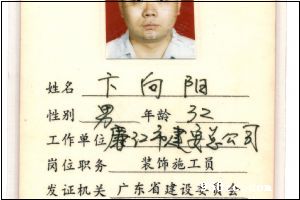 姓名 卞向阳
性别 男 年龄 32
工作单位 廉江市建安总公司
岗位职务 装饰施工员
发证机关 广东省建设委员会